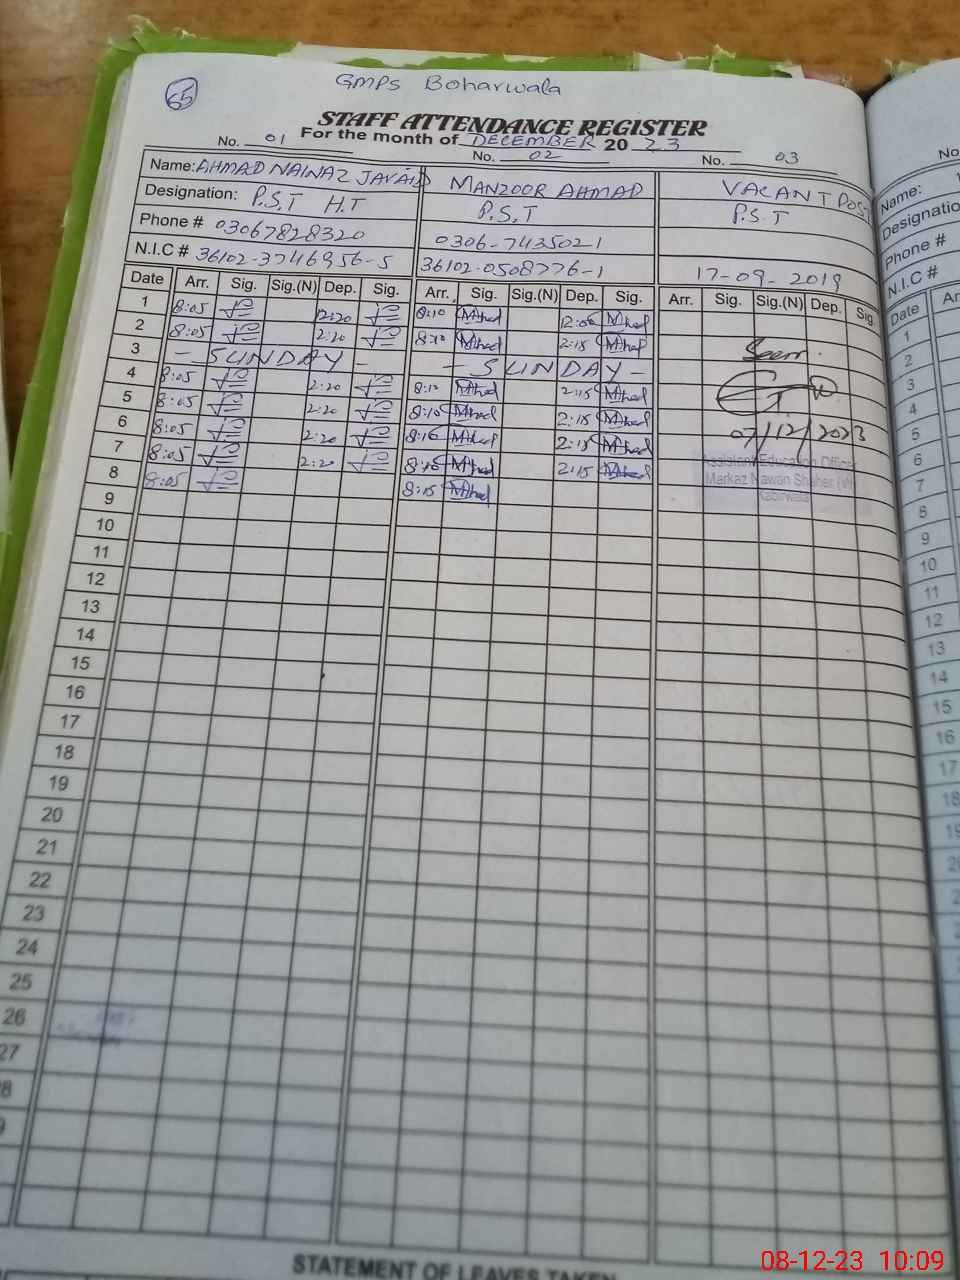 65
GMPS Boharwala
STAFF ATTENDANCE REGISTER
For the month of DECEMBER 20 23
No. 01 No. 02 No. 03
Name: AHMAD NAINAZ JAVAID MANZOOR AHMAD VACANT POST
Designation: P.S.T H.T P.S.T P.S.T
Phone # 03067828320 0306-7435021
N.I.C # 36102-3746956-5 36102-0508776-1 17-09-2019
Date Arr. Sig. Sig.(N) Dep. Sig. Arr. Sig. Sig.(N) Dep. Sig. Arr. Sig. Sig.(N) Dep. Sig.
1 8:05 12:20 8:10 12:00
2 8:05 2:20 8:10 2:15 Seen.
3 - SUNDAY - - SUNDAY -
4 8:05 2:20 8:10 2:15
5 8:05 2:20 8:10 2:15
6 8:05 2:20 8:10 2:15 07/12/2023
7 8:05 2:20 8:10 2:15 Assistant Education Officer
8 8:05 8:15 Markaz Nawan Shaher (W)
Kabirwala
9
10
11
12
13
14
15
16
17
18
19
20
21
22
23
24
25
26
27
8
9
STATEMENT OF LEAVES TAKEN
No
Name:
Designatio
Phone #
N.I.C #
Date Ar
1
2
3
4
5
6
7
8
9
10
11
12
13
14
15
16
17
18
19
20
08-12-23 10:09